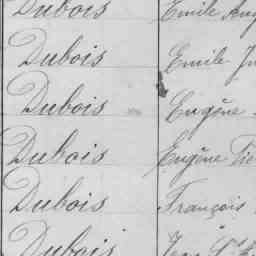 Dubois Emile Aug
Dubois Emile Ju
Dubois Eugène
Dubois Eugène Pie
Dubois François
Dubois